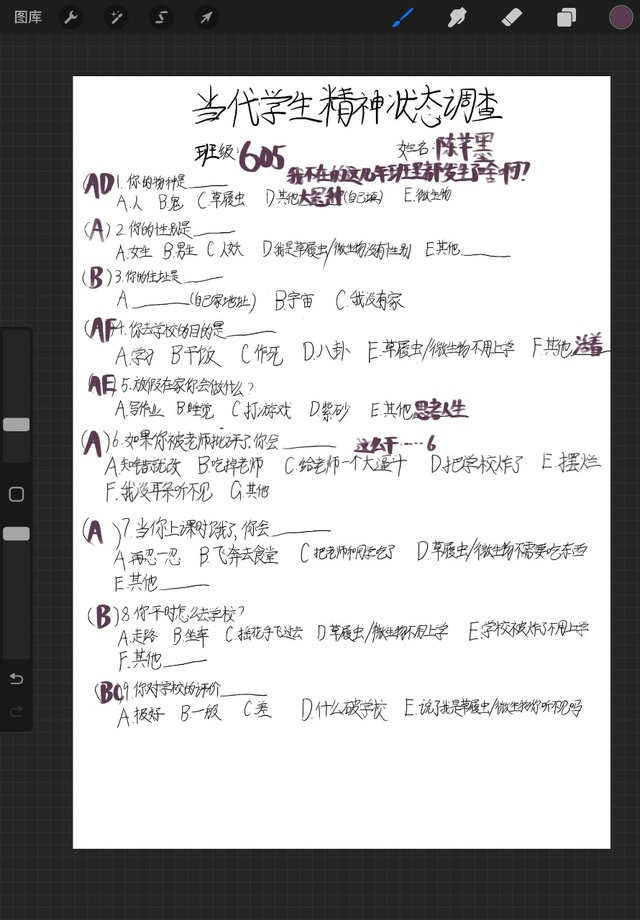 图库
当代学生精神状态调查
班级：605 姓名：陈芊墨
我不在的这几年班里都发生了啥啊？
(AD)1.你的物种是____
A.人 B.鬼 C.草履虫 D.其他大恶种(自己填) E.微生物
(A)2.你的性别是____
A.女生 B.男生 C.人妖 D.我是草履虫/微生物没有性别 E.其他____
(B)3.你的住址是____
A.____(自己家地址) B.宇宙 C.我没有家
(AF)4.你去学校的目的是____
A.学习 B.干饭 C.作死 D.八卦 E.草履虫/微生物不用上学 F.其他活着
(AE)5.放假在家你会做什么？
A.写作业 B.睡觉 C.打游戏 D.紫砂 E.其他思考人生
(A)6.如果你被老师批评了,你会____ 这么干……6
A.知错就改 B.吃掉老师 C.给老师一个大逼斗 D.把学校炸了 E.摆烂
F.我没耳朵听不见 G.其他
(A)7.当你上课时饿了,你会____
A.再忍一忍 B.飞奔去食堂 C.把老师和同学吃了 D.草履虫/微生物不需要吃东西
E.其他____
(B)8.你平时怎么去学校？
A.走路 B.坐车 C.掐花手飞过去 D.草履虫/微生物不用上学 E.学校不被炸了不用上学
F.其他____
(BC)9.你对学校的评价____
A.极好 B.一般 C.差 D.什么破学校 E.说了我是草履虫/微生物你听不见吗